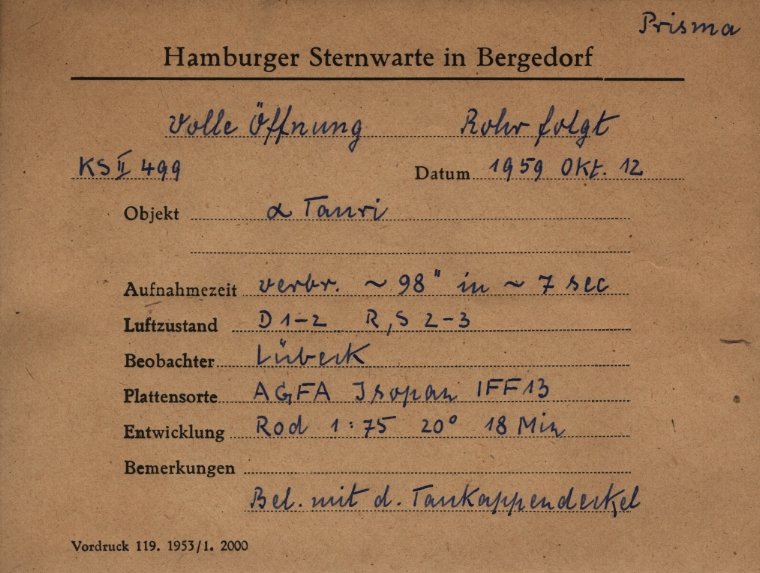 Prisma
Hamburger Sternwarte in Bergedorf
Volle Öffnung Rohr folgt
KS II 499 Datum 1959 Okt. 12
Objekt α Tauri
Aufnahmezeit verbr. ~ 98" in ~ 7 sec
Luftzustand D 1-2 R, S 2-3
Beobachter Lübeck
Plattensorte AGFA Isopan IFF13
Entwicklung Rod 1:75 20° 18 Min
Bemerkungen
Bel. mit d. Taukappendeckel
Vordruck 119. 1953/1. 2000